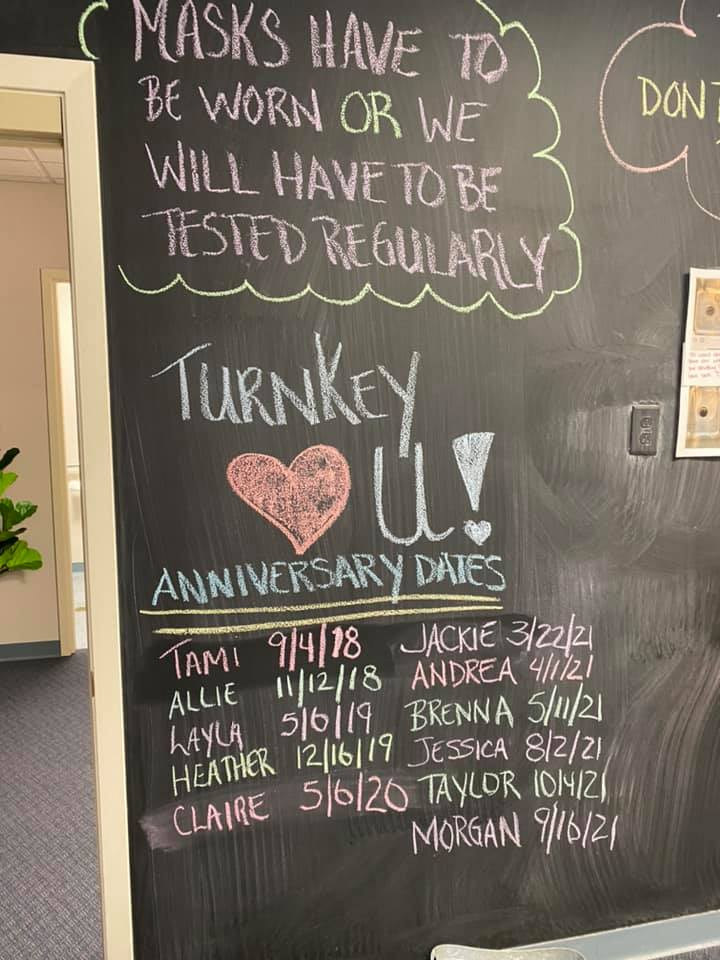 MASKS HAVE TO
BE WORN OR WE
WILL HAVE TO BE
TESTED REGULARLY
DON'T
TURNKEY
U!
ANNIVERSARY DATES
TAMI 9/4/18
ALLIE 11/12/18
LAYLA 5/6/19
HEATHER 12/16/19
CLAIRE 5/6/20
JACKIE 3/22/21
ANDREA 4/1/21
BRENNA 5/11/21
JESSICA 8/2/21
TAYLOR 10/4/21
MORGAN 9/16/21